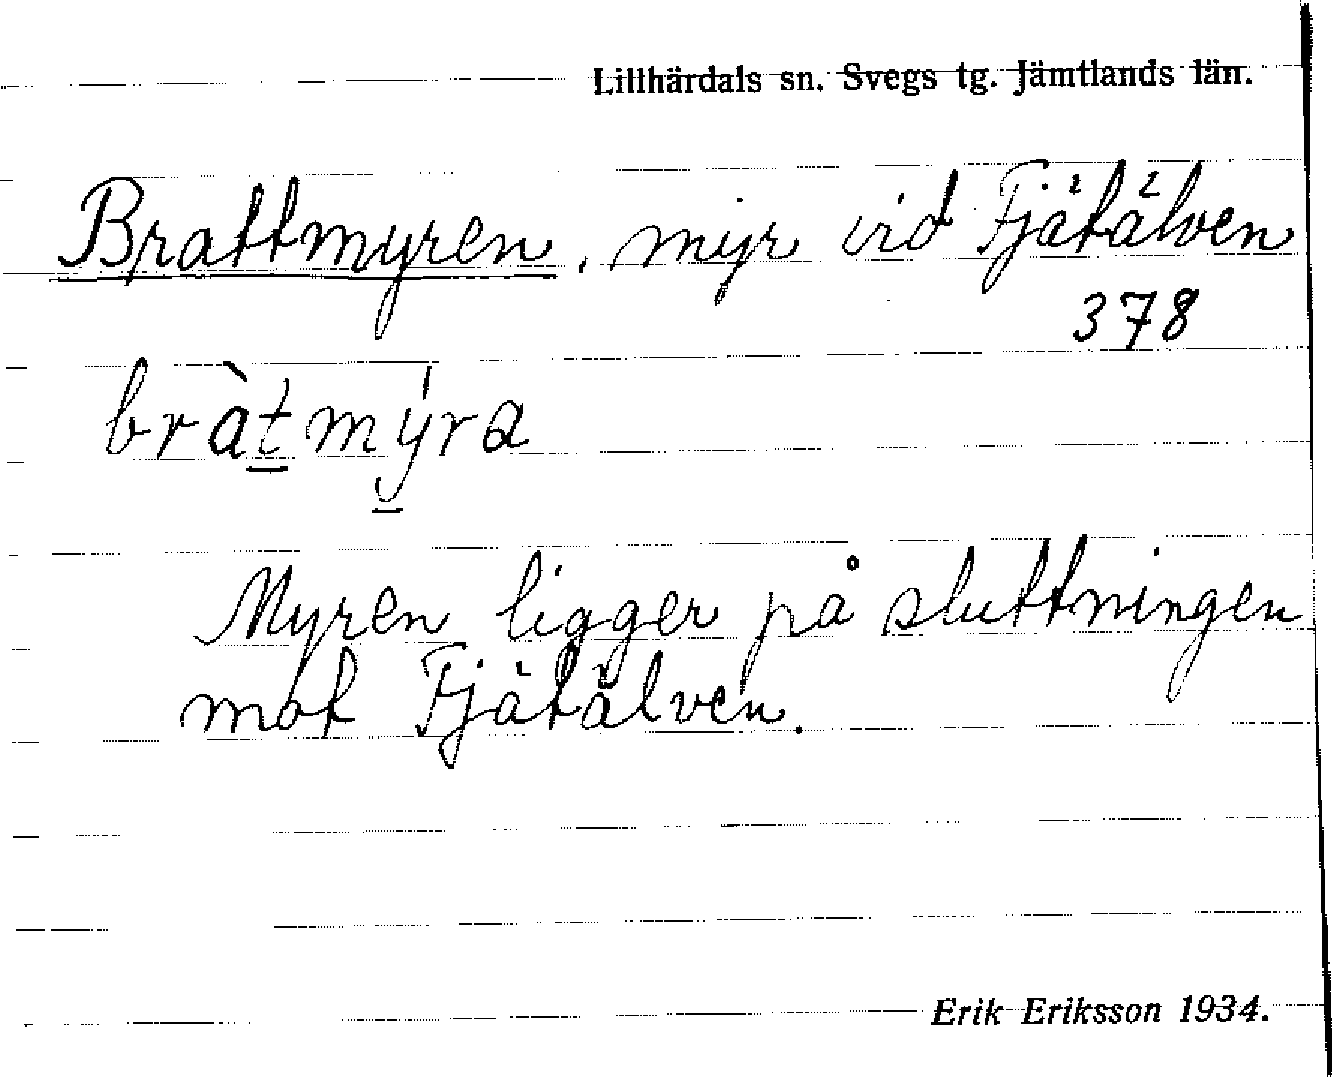 Lillhärdals sn. Svegs tg. Jämtlands län.
Brattmyren, myr vid Fjätälven
378
bràt̲mý̲ra
Myren ligger på sluttningen
mot Fjätälven.
Erik Eriksson 1934.